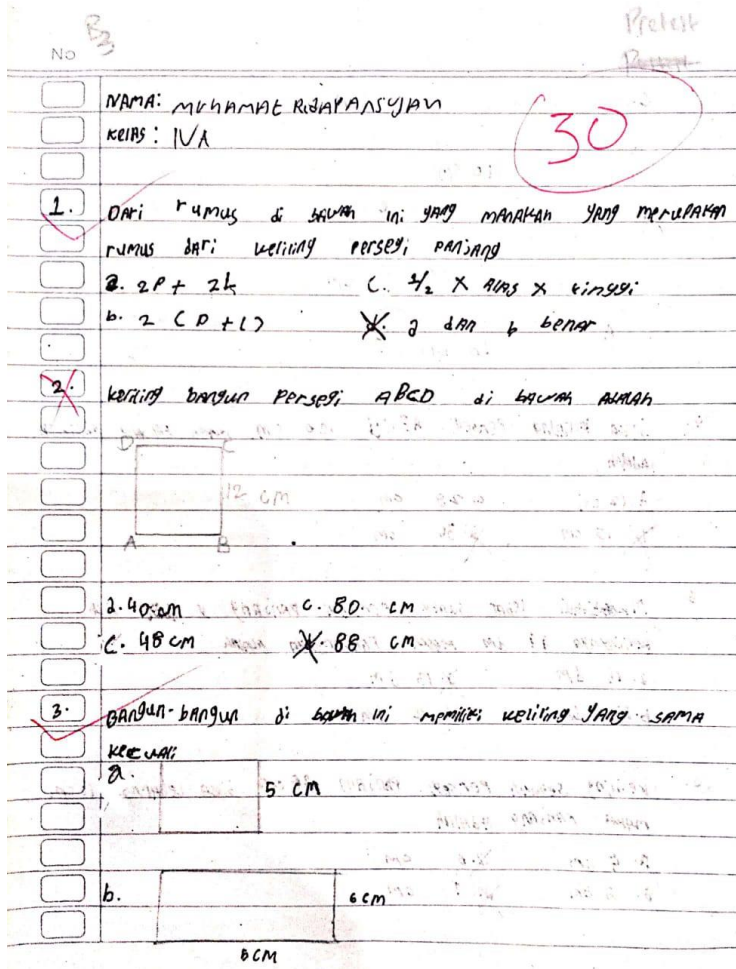 B23
Pretest
No
NAMA: MUHAMAT RIDAPANSYJAH
KelAS: IVA
30
1. DAri rumus di bawah ini yang manakah yang merupakan
rumus dari keliling persegi panjang
a. 2P + 2L c. 1/2 X Alas X tinggi
b. 2 (P + L) d. a dan b benar
2. keliling bangun persegi ABCD di bawah adalah
D C
12 cm
A B
a. 40 cm c. 80. cm
C. 48 cm 88 cm
3. Bangun-bangun di bawah ini memiliki keliling yang sama
kecuali
a. 5 cm
b. 6 cm